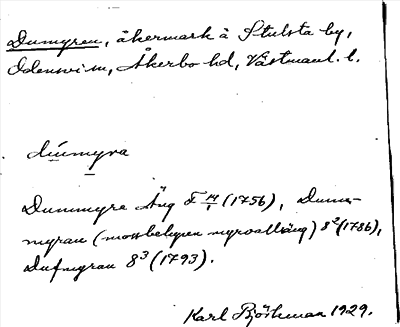 Dumyren, åkermark å Stulsta by,
Odensvi sn, Åkerbo hd, Västmanl. l.
dúmyra
Dummyre Äng F 14/1 (1756), Dum-
myran (mossbelupen myrvalläng) 8² (1786),
Dufmyran 8³ (1793).
Karl Björkman 1929.